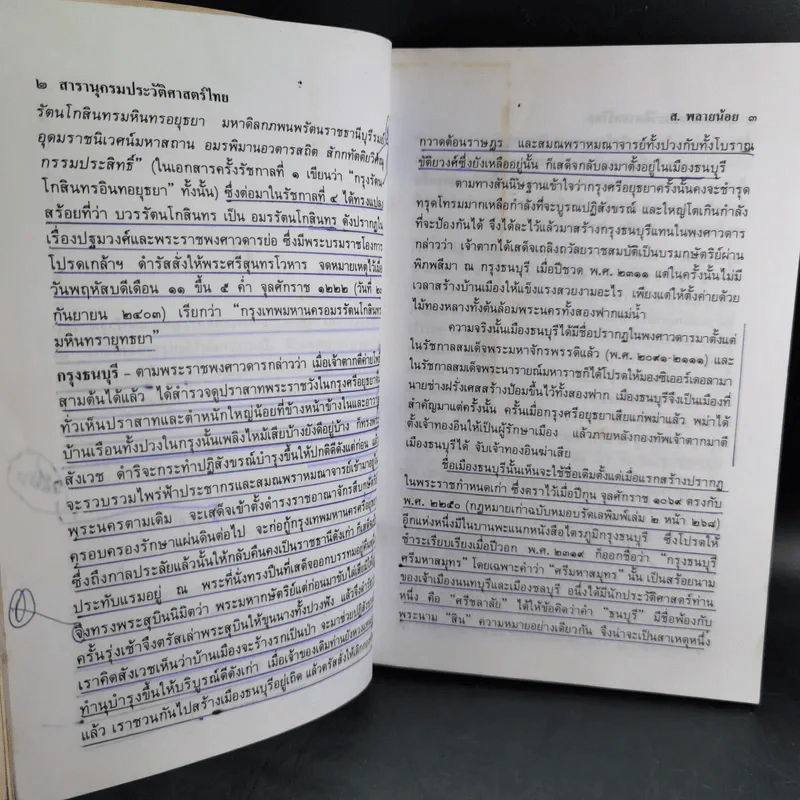 ๒ สารานุกรมประวัติศาสตร์ไทย
รัตนโกสินทรมหินทรอยุธยา มหาดิลกภพนพรัตนราชธานีบุรีรมย์
อุดมราชนิเวศน์มหาสถาน อมรพิมานอวตารสถิต สักกทัตติยวิศณุ
กรรมประสิทธิ์” (ในเอกสารครั้งรัชกาลที่ ๑ เขียนว่า “กรุงรัตน
โกสินทรอินทอยุธยา” ทั้งนั้น) ซึ่งต่อมาในรัชกาลที่ ๔ ได้ทรงแปลง
สร้อยที่ว่า บวรรัตนโกสินทร เป็น อมรรัตนโกสินทร ดังปรากฏใน
เรื่องปฐมวงศ์และพระราชพงศาวดารย่อ ซึ่งมีพระบรมราชโองการ
โปรดเกล้าฯ ดำรัสสั่งให้พระศรีสุนทรโวหาร จดหมายเหตุไว้เมื่อ
วันพฤหัสบดีเดือน ๑๑ ขึ้น ๕ ค่ำ จุลศักราช ๑๒๒๒ (วันที่ ๒๐
กันยายน ๒๔๐๓) เรียกว่า “กรุงเทพมหานครอมรรัตนโกสินทร
มหินทรายุทธยา”
กรุงธนบุรี - ตามพระราชพงศาวดารกล่าวว่า เมื่อเจ้าตากตีค่ายโพธิ์
สามต้นได้แล้ว ได้สำรวจดูปราสาทพระราชวังในกรุงศรีอยุธยา
ทั่วเห็นปราสาทและตำหนักใหญ่น้อยที่ข้างหน้าข้างในและอาวาส
บ้านเรือนทั้งปวงในกรุงนั้นเพลิงไหม้เสียบ้างยังดีอยู่บ้าง ก็ทรง
สังเวช ดำริจะกระทำปฏิสังขรณ์บำรุงขึ้นให้ปกติดีดังแต่ก่อน แล้ว
จะรวบรวมไพร่ฟ้าประชากรและสมณพราหมณาจารย์เข้ามาอยู่ใน
พระนครตามเดิม จะเสด็จเข้าตั้งดำรงราชอาณาจักรสืบกษัตริย์
ครอบครองรักษาแผ่นดินต่อไป จะก่อกู้กรุงเทพมหานครศรีอยุธยา
ซึ่งถึงกาลประลัยแล้วนั้นให้กลับคืนคงเป็นราชธานีดังเก่า ก็เสด็จ
ประทับแรมอยู่ ณ พระที่นั่งทรงปืนที่เสด็จออกบรรทมอยู่คืนหนึ่ง
จึงทรงพระสุบินนิมิตว่า พระมหากษัตริย์แต่ก่อนมาขับไล่เสียมิให้อยู่
ครั้นรุ่งเช้าจึงตรัสเล่าพระสุบินให้ขุนนางทั้งปวงฟัง แล้วจึงดำรัสว่า
เราคิดสังเวชเห็นว่าบ้านเมืองจะร้างรกเป็นป่า จะมาช่วยปฏิสังขรณ์
ทำนุบำรุงขึ้นให้บริบูรณ์ดีดังเก่า เมื่อเจ้าของเดิมท่านยังหวงแหนอยู่
แล้ว เราชวนกันไปสร้างเมืองธนบุรีอยู่เถิด แล้วตรัสสั่งให้เลิก
ส. พลายน้อย ๓
กวาดต้อนราษฎร และสมณพราหมณาจารย์ทั้งปวงกับทั้งโบราณ
ขัติยวงศ์ซึ่งยังเหลืออยู่นั้น ก็เสด็จกลับลงมาตั้งอยู่ในเมืองธนบุรี
ตามทางสันนิษฐานเข้าใจว่ากรุงศรีอยุธยาครั้งนั้นคงจะชำรุด
ทรุดโทรมมากเหลือกำลังที่จะบูรณปฏิสังขรณ์ และใหญ่โตเกินกำลัง
ที่จะป้องกันได้ จึงได้ละไว้แล้วมาสร้างกรุงธนบุรีแทนในพงศาวดาร
กล่าวว่า เจ้าตากได้เสด็จเถลิงถวัลยราชสมบัติเป็นบรมกษัตริย์ผ่าน
พิภพสีมา ณ กรุงธนบุรี เมื่อปีชวด พ.ศ. ๒๓๑๑ แต่ในครั้งนั้นไม่มี
เวลาสร้างบ้านเมืองให้แข็งแรงสวยงามอะไร เพียงแต่ให้ตั้งค่ายด้วย
ไม้ทองหลางทั้งต้นล้อมพระนครทั้งสองฟากแม่น้ำ
ความจริงนั้นเมืองธนบุรีได้มีชื่อปรากฏในพงศาวดารมาตั้งแต่
ในรัชกาลสมเด็จพระมหาจักรพรรดิแล้ว (พ.ศ. ๒๐๙๑-๒๑๑๑) และ
ในรัชกาลสมเด็จพระนารายณ์มหาราชก็ได้โปรดให้มองซิเออร์เดอลามา
นายช่างฝรั่งเศสสร้างป้อมขึ้นไว้ทั้งสองฟาก เมืองธนบุรีจึงเป็นเมืองที่
สำคัญมาแต่ครั้งนั้น ครั้นเมื่อกรุงศรีอยุธยาเสียแก่พม่าแล้ว พม่าได้
ตั้งเจ้าทองอินให้เป็นผู้รักษาเมือง แล้วภายหลังกองทัพเจ้าตากมาตี
เมืองธนบุรีได้ จับเจ้าทองอินฆ่าเสีย
ชื่อเมืองธนบุรีนั้นเห็นจะใช้ชื่อเดิมตั้งแต่เมื่อแรกสร้างปรากฏ
ในพระราชกำหนดเก่า ซึ่งตราไว้เมื่อปีกุน จุลศักราช ๑๐๖๙ ตรงกับ
พ.ศ. ๒๒๕๐ (กฎหมายเก่าฉบับหมอบรัดเลพิมพ์เล่ม ๒ หน้า ๒๖๘)
อีกแห่งหนึ่งมีในบานพะแนกหนังสือไตรภูมิกรุงธนบุรี ซึ่งโปรดให้
ชำระเรียบเรียงเมื่อปีวอก พ.ศ. ๒๓๑๙ ก็ออกชื่อว่า “กรุงธนบุรี
ศรีมหาสมุทร” โดยเฉพาะคำว่า “ศรีมหาสมุทร” นั้น เป็นสร้อยนาม
ของเจ้าเมืองนนทบุรีและเมืองชลบุรี อนึ่งได้มีนักประวัติศาสตร์ท่าน
หนึ่ง คือ “ศรีชลาลัย” ได้ให้ข้อคิดว่าคำ “ธนบุรี” มีชื่อพ้องกับ
พระนาม “สิน” ความหมายอย่างเดียวกัน จึงน่าจะเป็นสาเหตุหนึ่ง